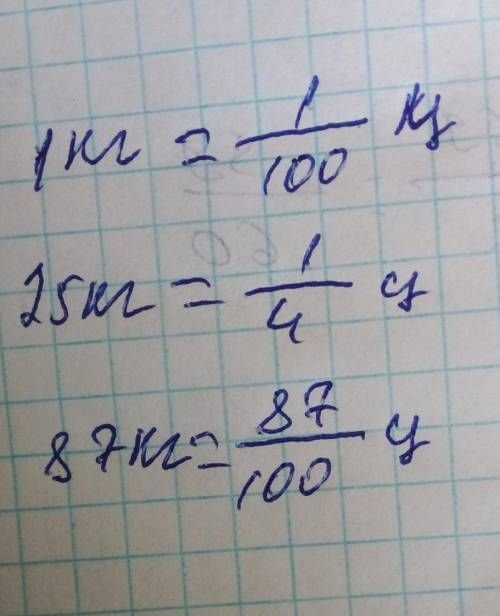 1кг = 1/100 кц
25кг = 1/4 ц
87кг = 87/100 ц